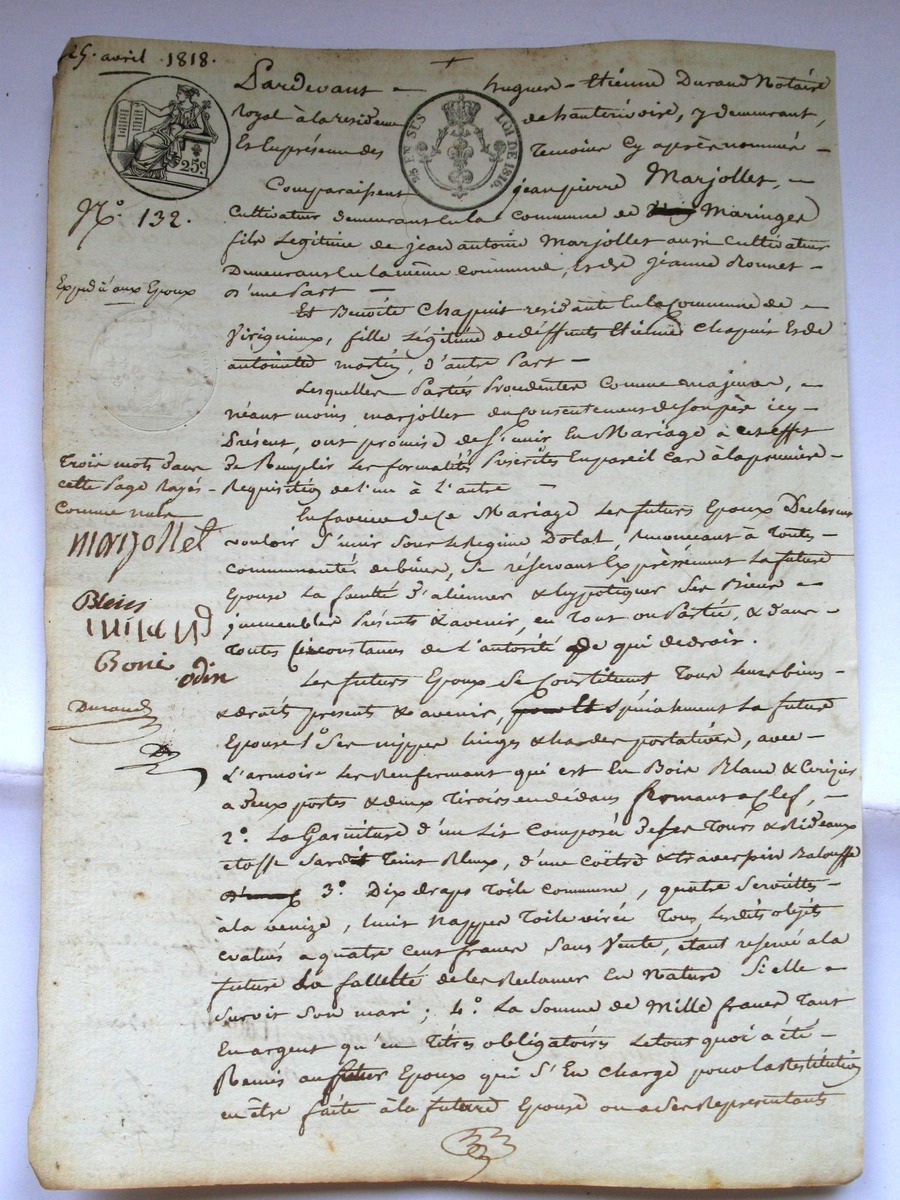 25. avril . 1818.
Pardevant hugues-Etienne Durand Notaire
Royal à la residence de hauterivoire, y demeurant,
Et En présence des Temoins Cy après nommés
25c
25 EN SUS LOI DE 1816.
Comparaissent jean pierre Marjollet,
N.º 132.
Cultivateur demeurant En la Commune de Maringes
fils Legitime de jean antoine Marjollet aussi Cultivateur
Demeurant En la même Commune, et de jeanne
D'une Part
Expedié aux Epoux
Et Benoîte Chapuis residante En la Commune de
Virigneux, fille Légitime de déffunts Etienne Chapuis Et de
antoinette , d'autre Part
Lesquelles Parties Procedentes Comme majeures,
néant moins marjollet du Consentement de son père icy
Présent, ont promis de S'unir En Mariage à cet effet
de Remplir Les formalités Prescrites En pareil Cas à la premiere
Requisition de l'un à L'autre
Trois mots dans
cette Page Rayés
Comme nuls
marjollet
En faveur de Ce Mariage Les futurs Epoux Declarent
vouloir S'unir Sous Le Regime Dotal, renonceant à Toutes
Communautés de biens, Se réservant Expréssément La future
Epouse La faculté d'aliener & hypotéquer Ses Biens
immeubles Présents & avenir, en Tout ou Partie, & dans
Toutes Circonstances de L'autorité de qui de droit.
odin
Durand
Les futurs Epoux Se Constituent Tous leurs biens
& droits présents & avenir, Spécialement La future
Epouse 1º Ses nippes linges & hardes portatives, avec
L'armoire Les Renfermant qui est En Bois Blanc & Cerizier
a deux portes & deux Tiroirs en dédans fermant a Clef,
2º. La Garniture d'un Lit Composée de ses Tours & Rideaux
étoffe Teint Bleux, d'une coëtre & traverssin Balouffe
3º. Dix draps Toile Commune, quatre Serviettes
à la venize, huit Nappes Toile Tous Lesdits objets
evalués a quatre Cent francs Sans Vente, étant reservé a la
future la de les Reclamer En Nature Si elle
Survit Son mari ; 4º. La Somme de Mille francs Tant
En argent qu'en Titres obligatoires Le tout quoi a été
Remis au futur Epoux qui S'En Charge pour la Restitution
en être faite à la future Epouse ou a Ses Représentants